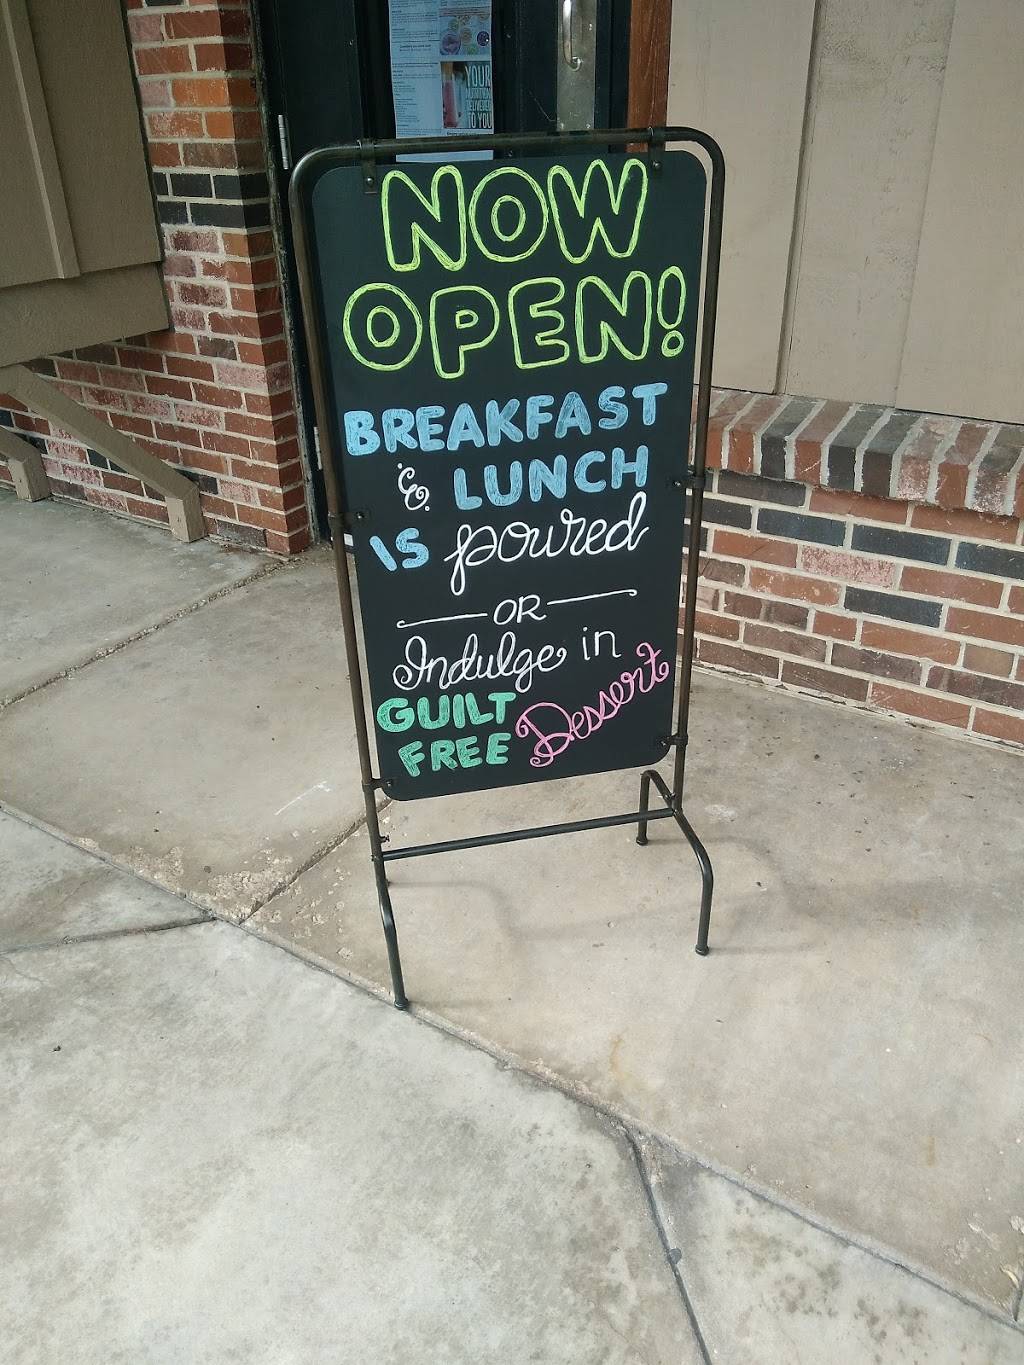 YOUR
DELIVERED
TO YOU
NOW
OPEN!
BREAKFAST
& LUNCH
IS poured
OR
Indulge in
GUILT
FREE Dessert